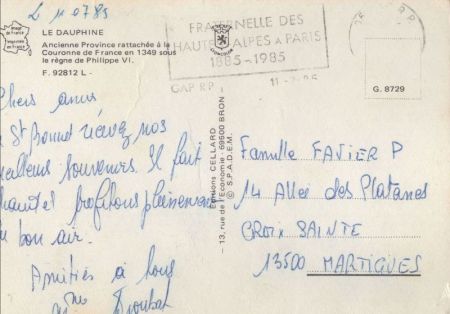 L 11 0785
LE DAUPHINE
Ancienne Province rattachée à la
Couronne de France en 1349 sous
le règne de Philippe VI.
F. 92812 L -
FRATERNELLE DES
HAUTES ALPES à PARIS
1885-1985
GAP R P
G. 8729
Chers amis
St Bonnet recevez nos
meilleurs souvenirs. Il fait
chaud et profitons pleinement
du bon air.
Amitiés à tous
Editions CELLARD
- 13, rue de l'Economie - 69500 BRON
© S.P.A.D.E.M.
Famille FAVIER P
14 Allei des Platanes
CROIX SAINTE
13500 MARTIGUES